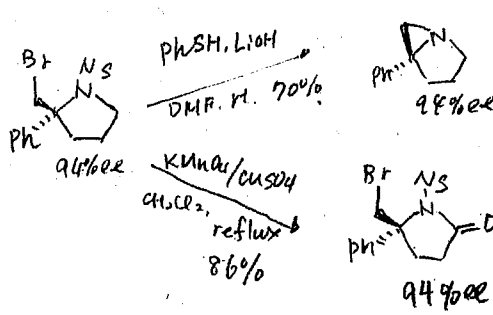 Br
NS
N
Ph
94%ee
PhSH, LiOH
DMF. rt. 70%
N
Ph
94%ee
KMnO4/CuSO4
CH2Cl2,
reflux
86%
Br
NS
N
O
Ph
94%ee